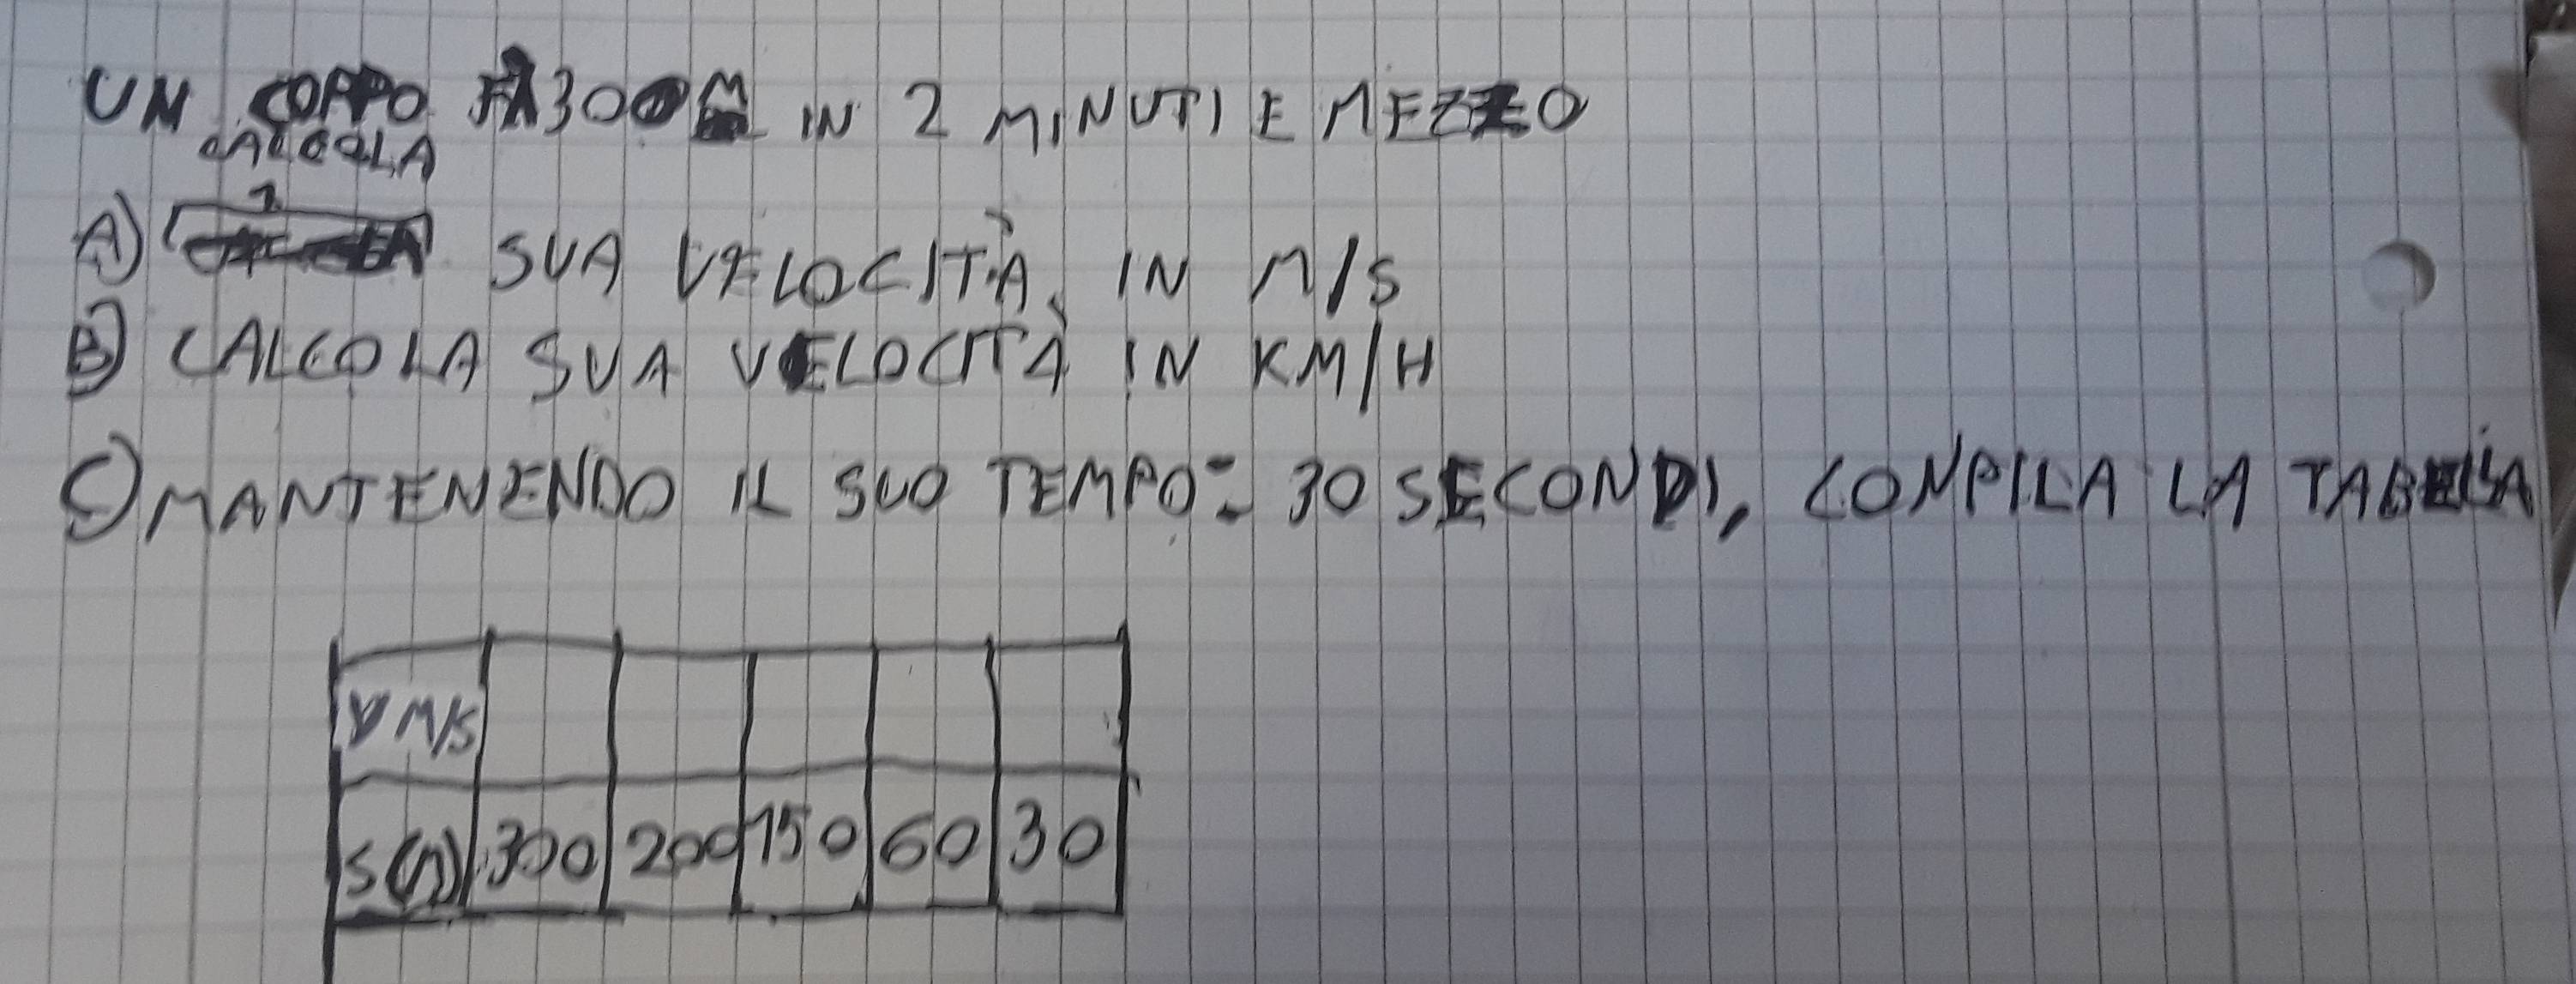 UN CORPO FA 300 M IN 2 MINUTI E MEZZO
CALCOLA
A) SUA VELOCITÀ IN M/S
B) CALCOLA SUA VELOCITÀ IN KM/H
C) MANTENENDO IL SUO TEMPO = 30 SECONDI, COMPILA LA TABELLA
V M/S
S(M) 300 200 150 60 30